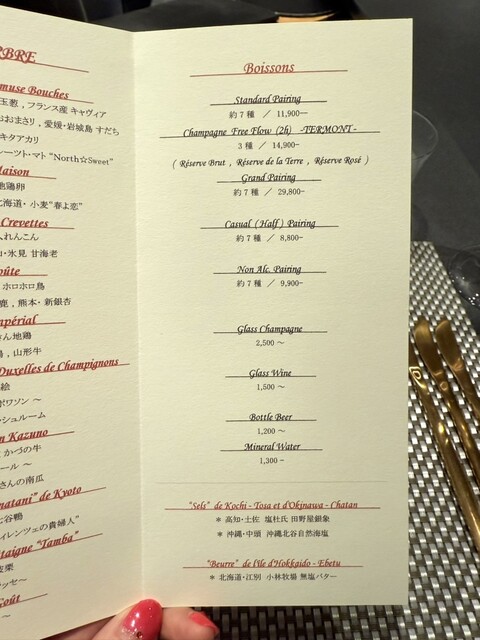 RBRE
muse Bouches
玉葱 , フランス産 キャヴィア
おおまさり , 愛媛・岩城島 すだち
キタアカリ
ルーツト・マト "North☆Sweet"
Maison
地鶏卵
北海道・ 小麦"春よ恋"
Crevettes
れんこん
氷見 甘海老
oûte
ホロホロ鳥
鹿 , 熊本・ 新銀杏
mpérial
さん地鶏
, 山形牛
Duxelles de Champignons
絵
ポワソン ～
シュルーム
n Kazuno
かづの牛
ール ～
さんの南瓜
natani" de Kyoto
七谷鴨
ィレンツェの貴婦人"
taigne "Tamba"
栗
ッセ～
Goût
～
Boissons
Standard Pairing
約７種 ／ 11,900―
Champagne Free Flow (2h) -TERMONT-
３種 ／ 14,900-
( Réserve Brut , Réserve de la Terre , Réserve Rosé )
Grand Pairing
約７種 ／ 29,800-
Casual (Half) Pairing
約７種 ／ 8,800-
Non Alc. Pairing
約７種 ／ 9,900-
Glass Champagne
2,500 ～
Glass Wine
1,500 ～
Bottle Beer
1,200 ～
Mineral Water
1,300 -
"Sels" de Kochi - Tosa et d'Okinawa - Chatan
＊ 高知・土佐 塩杜氏 田野屋銀象
＊ 沖縄・中頭 沖縄北谷自然海塩
"Beurre" de l'île d'Hokkaido - Ebetu
＊ 北海道・江別 小林牧場 無塩バター